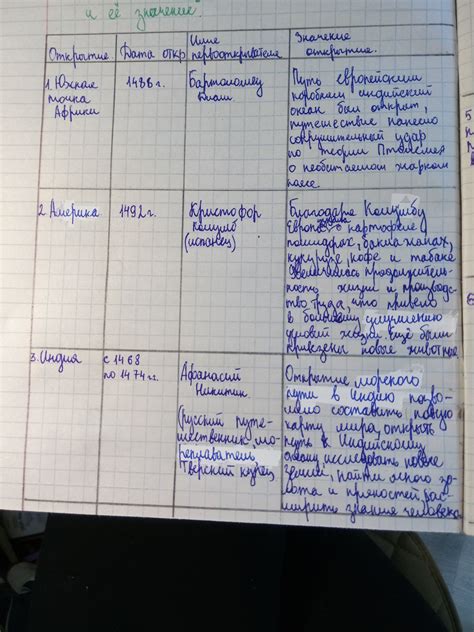 и её значение.
Открытие
Дата откр
Имя
первооткрывателя
Значение
открытия.
1. Южная
точка
Африки
1486г.
Бартоломеу
Путь европейским
кораблям индийский
океан был открыт,
путешествие нанесло
сокрушительный удар
по теории Птолемея
о необитаемом жарком
поясе
2 Америка
1492г.
Кристофор
Колумб
(испанец)
Благодаря Колумбу
Европа узнала о картофеле
помидорах, баклажанах,
кукурузе, кофе и табаке
Увеличилась продолжитель-
ность жизни и производ
ство труда, что привело
в большому улучшению
уровня жизни. Ещё были
привезены новые животные
3. Индия
с 1468
по 1474гг.
Афанасий
Никитин
(русский путе-
шественник, мо-
реплаватель
Тверский купец
Открытие морского
пути в Индию позво-
лило составить новую
карту мира, открыть
путь к Индийскому
океану исследовать новые
земли, найти много зо-
лота и пряностей, рас-
ширить знания человека
5